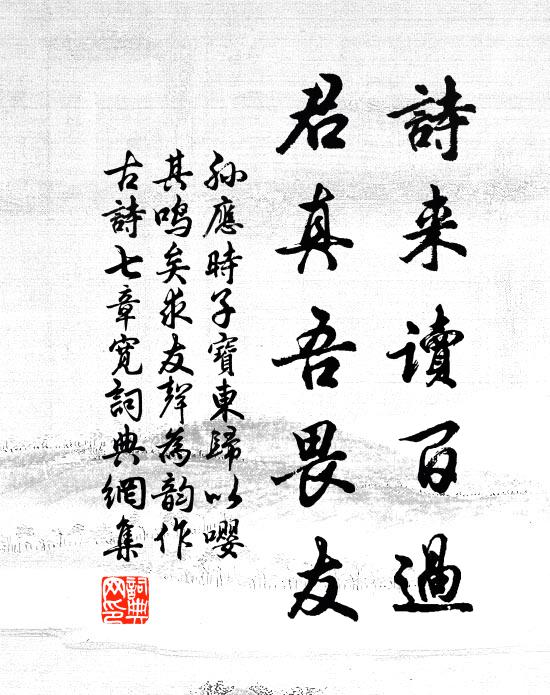 詩来讀百過
君真吾畏友
孫應時子寶東歸以嚶
其鳴矣求友聲為韵作
古詩七章寬詞典網集
詞典
网印